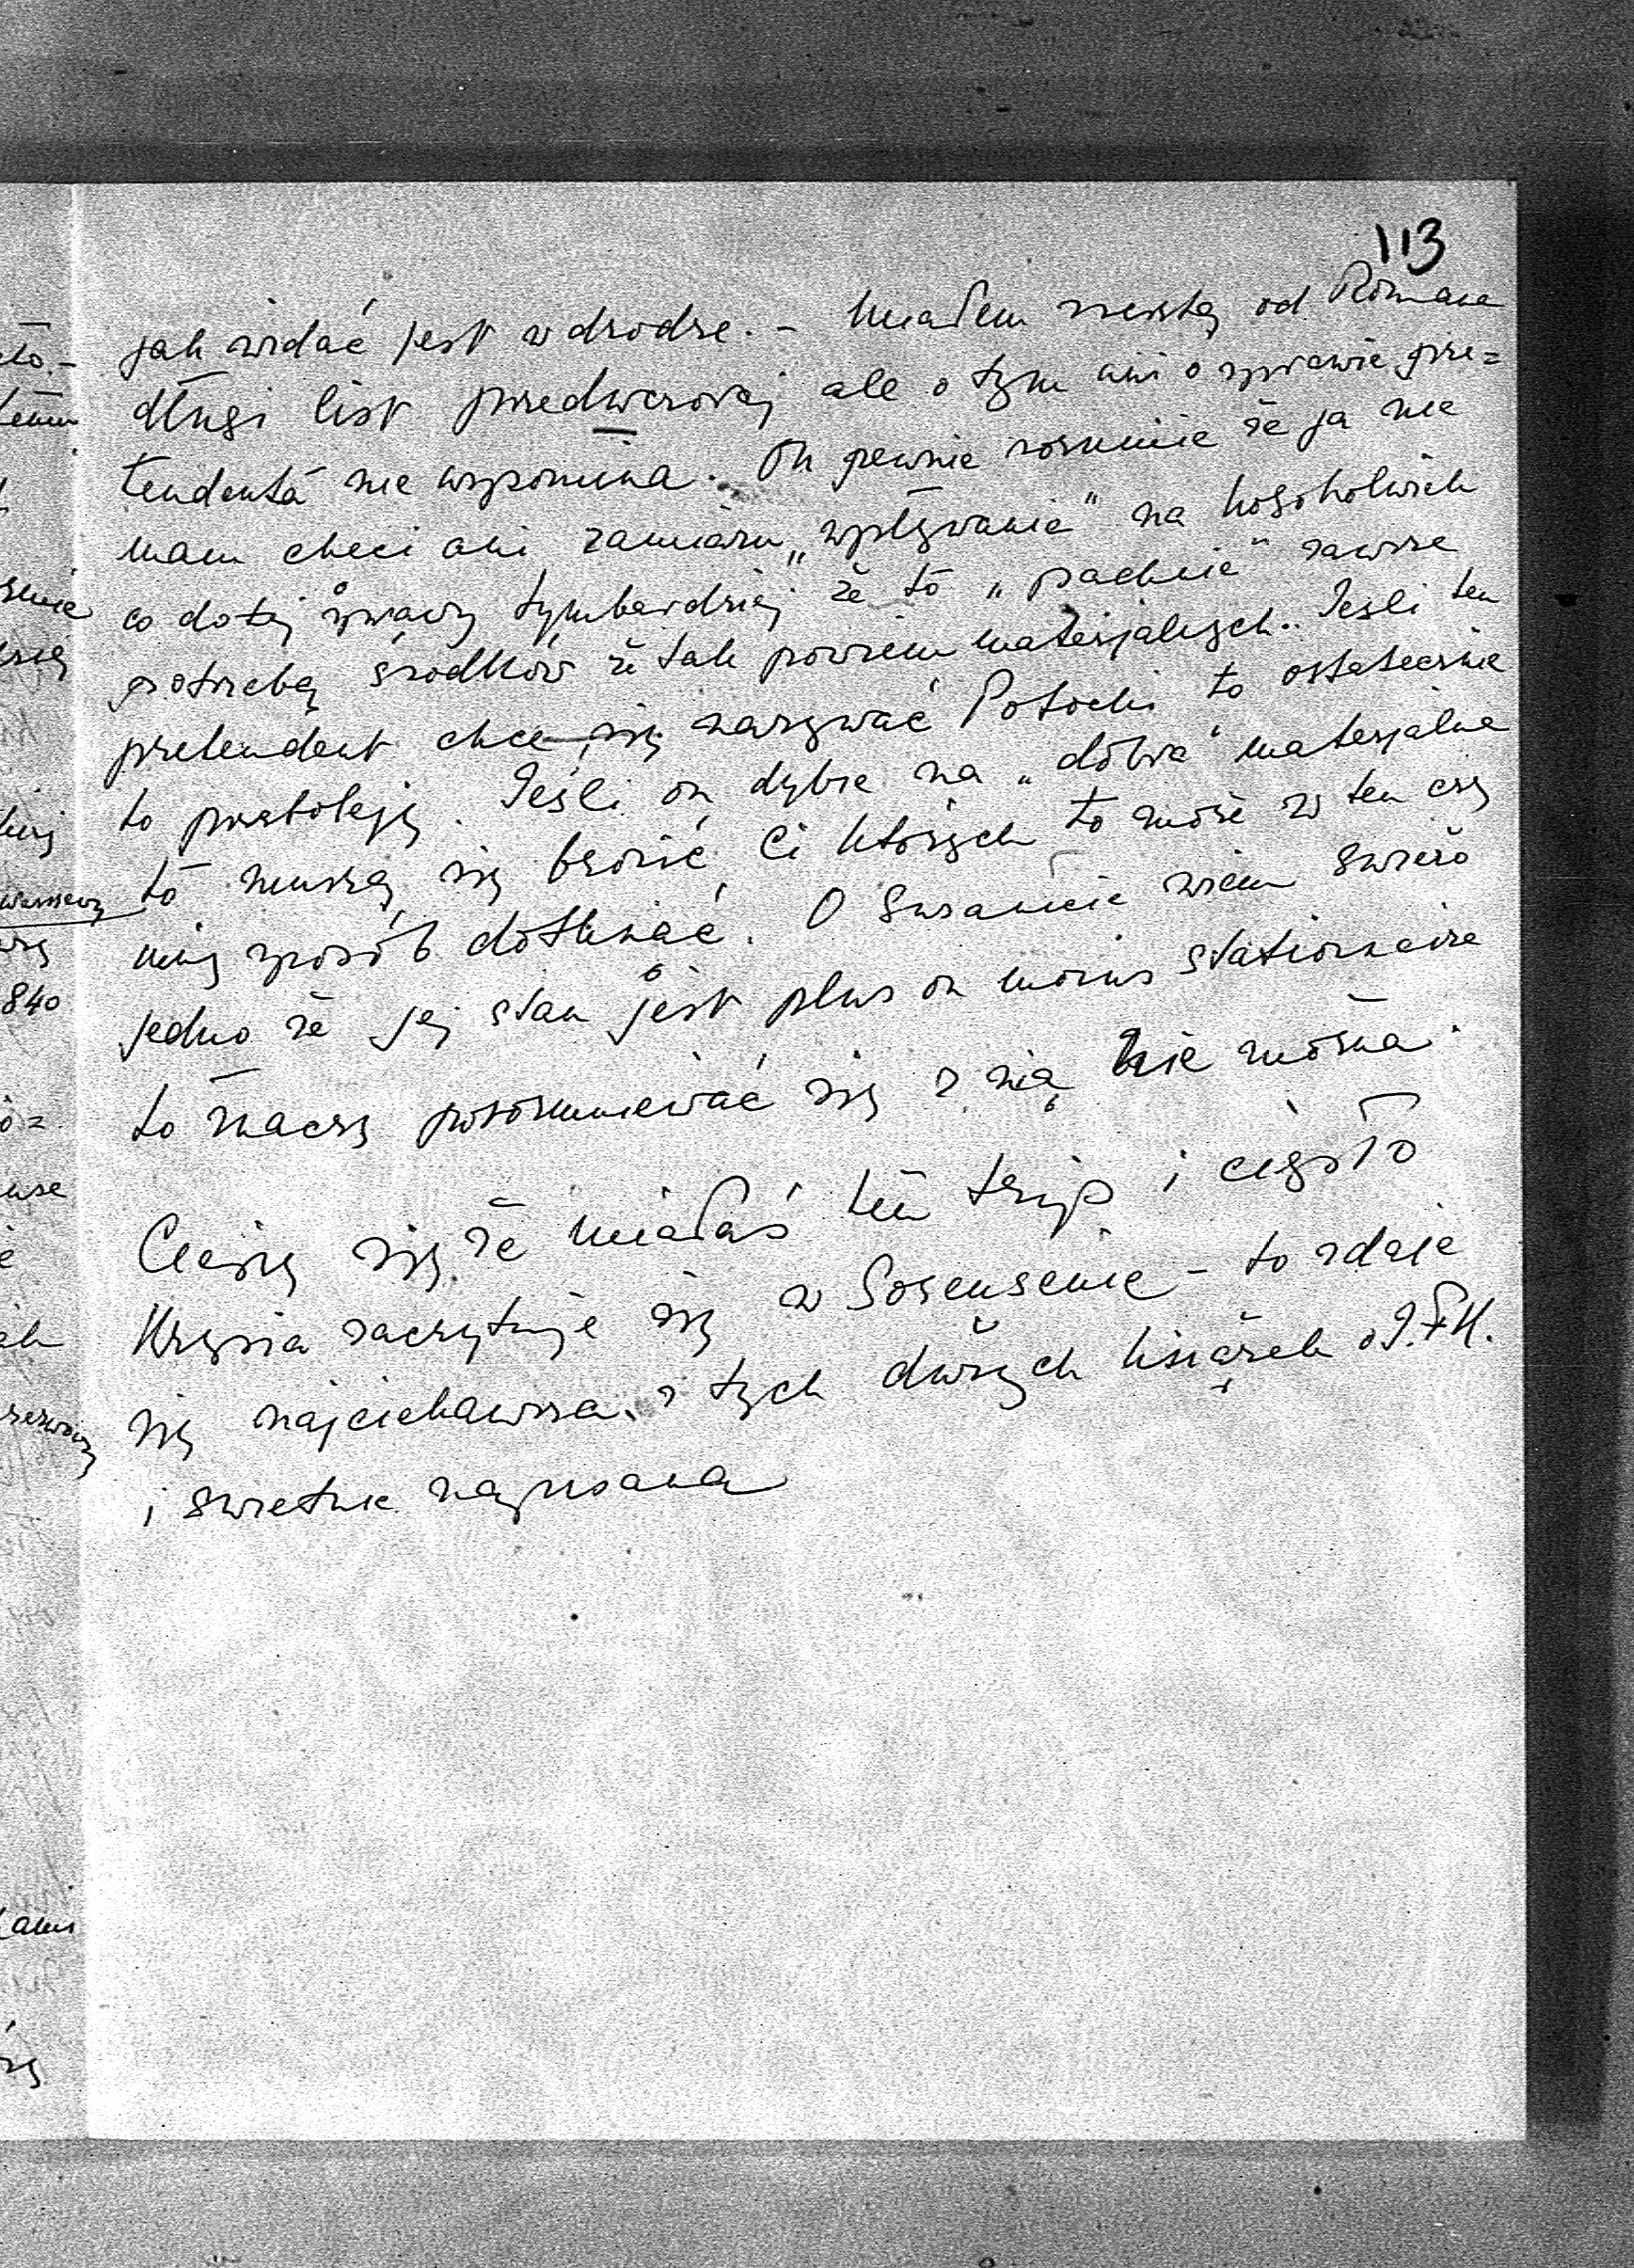 113
jak widać jest w drodze. - Miałem zresztą od Romana
długi list przedwczoraj ale o tym ani o sprawie pre=
tendentá nie wspomina. On pewnie rozumie że ja nie
mam chęci ani zamiaru „wpływania" na kogokolwiek
co do tej sprawy tymbardziej że to „pachnie" zawsze
potrzebą środków że tak powiem materjalnych. Jeśli ten
pretendent chce się nazywać Potocki to ostatecznie
to przeboleję. Jeśli on dybie na „dobra" materjalne
to muszą się bronić Ci których to może w ten czy
inny sposób dotknąć. O Suzannie wiem świeżo
jedno że jej stan jest plus ou moins stationnaire
to znaczy porozumiewać się z nią nie można.
Cieszę się że miałaś ten tryp i
Krysia zaczytuje się w Sorensenie - to zdaje
się najciekawsza z tych dwóch książek o J.F.K.
i świetnie napisana
to.-
840
ó=